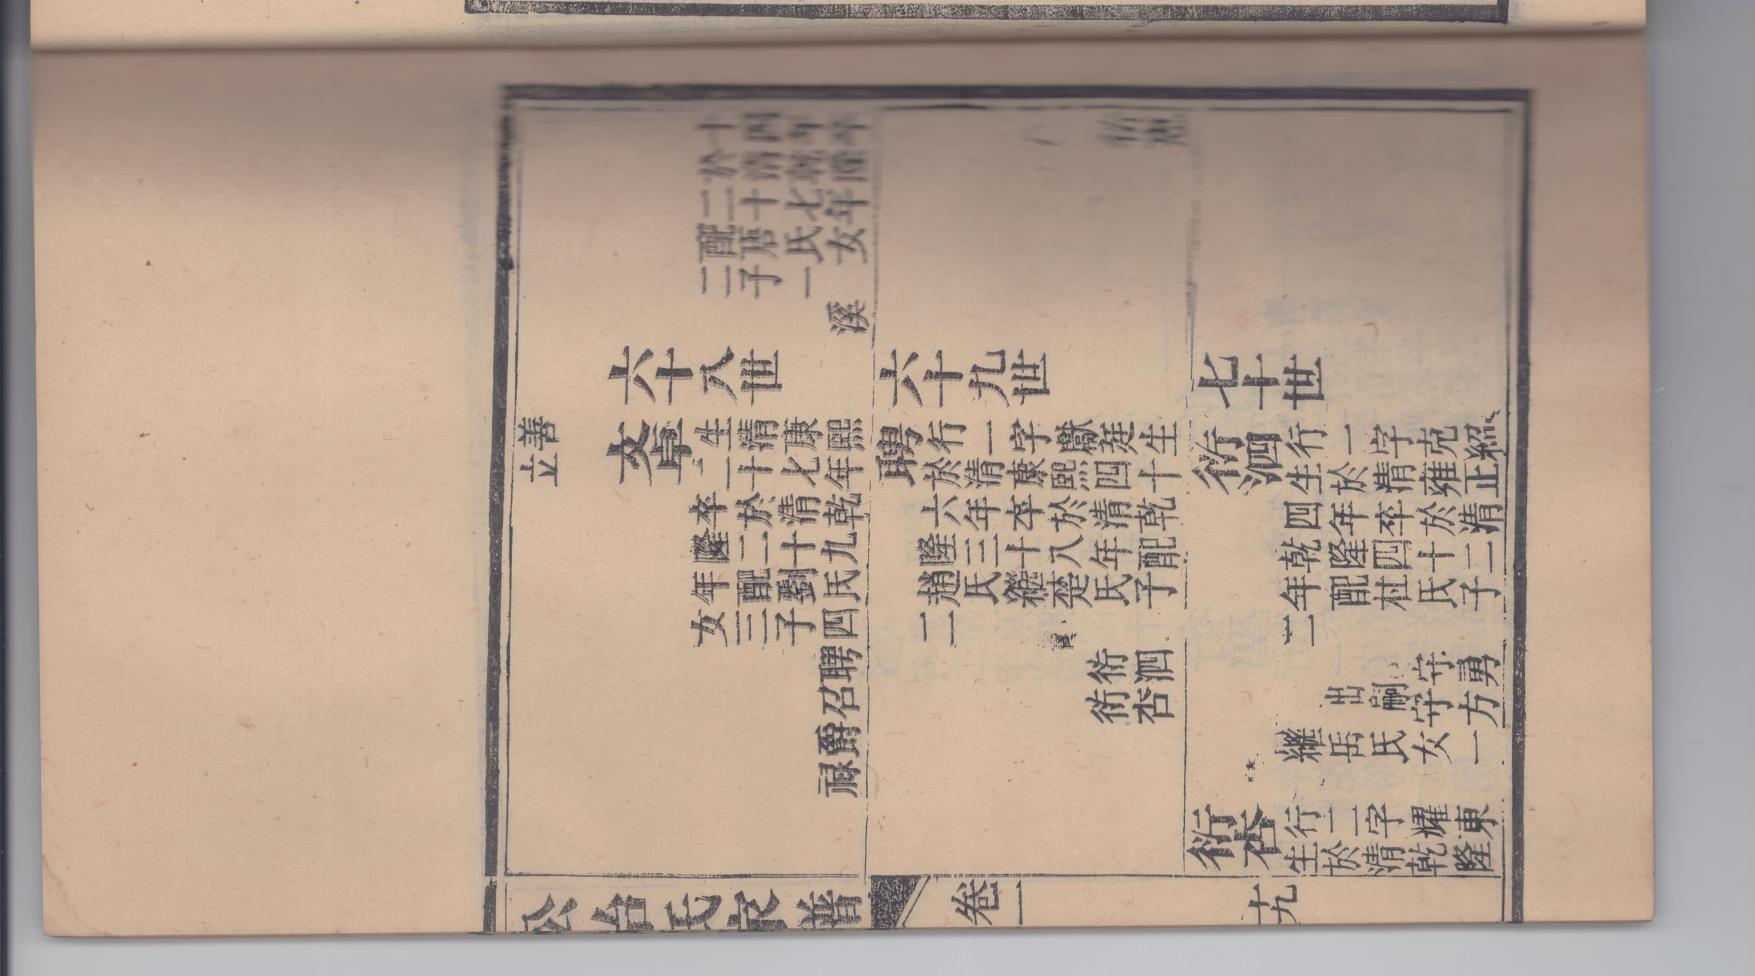 十四年卒
於清乾隆
二十七年
配唐氏女
二子一
溪
六十八世
立善
文章
一生清康熙
二十七年
卒於清乾
隆二十九
年配劉氏
女三子四
聘
召
爵
祿
六十九世
聘
行一字獻廷生
於清康熙四十
六年卒於清乾
隆三十八年配
趙氏繼楚氏子
二
衍泗
衍杏
七十世
衍泗
行一字克紹
生於清雍正
四年卒於清
乾隆四十二
年配杜氏子
二
守勇
出嗣
守方
繼岳氏女一
衍杏
行二字耀東
生於清乾隆
公冶氏家譜
卷一
十九